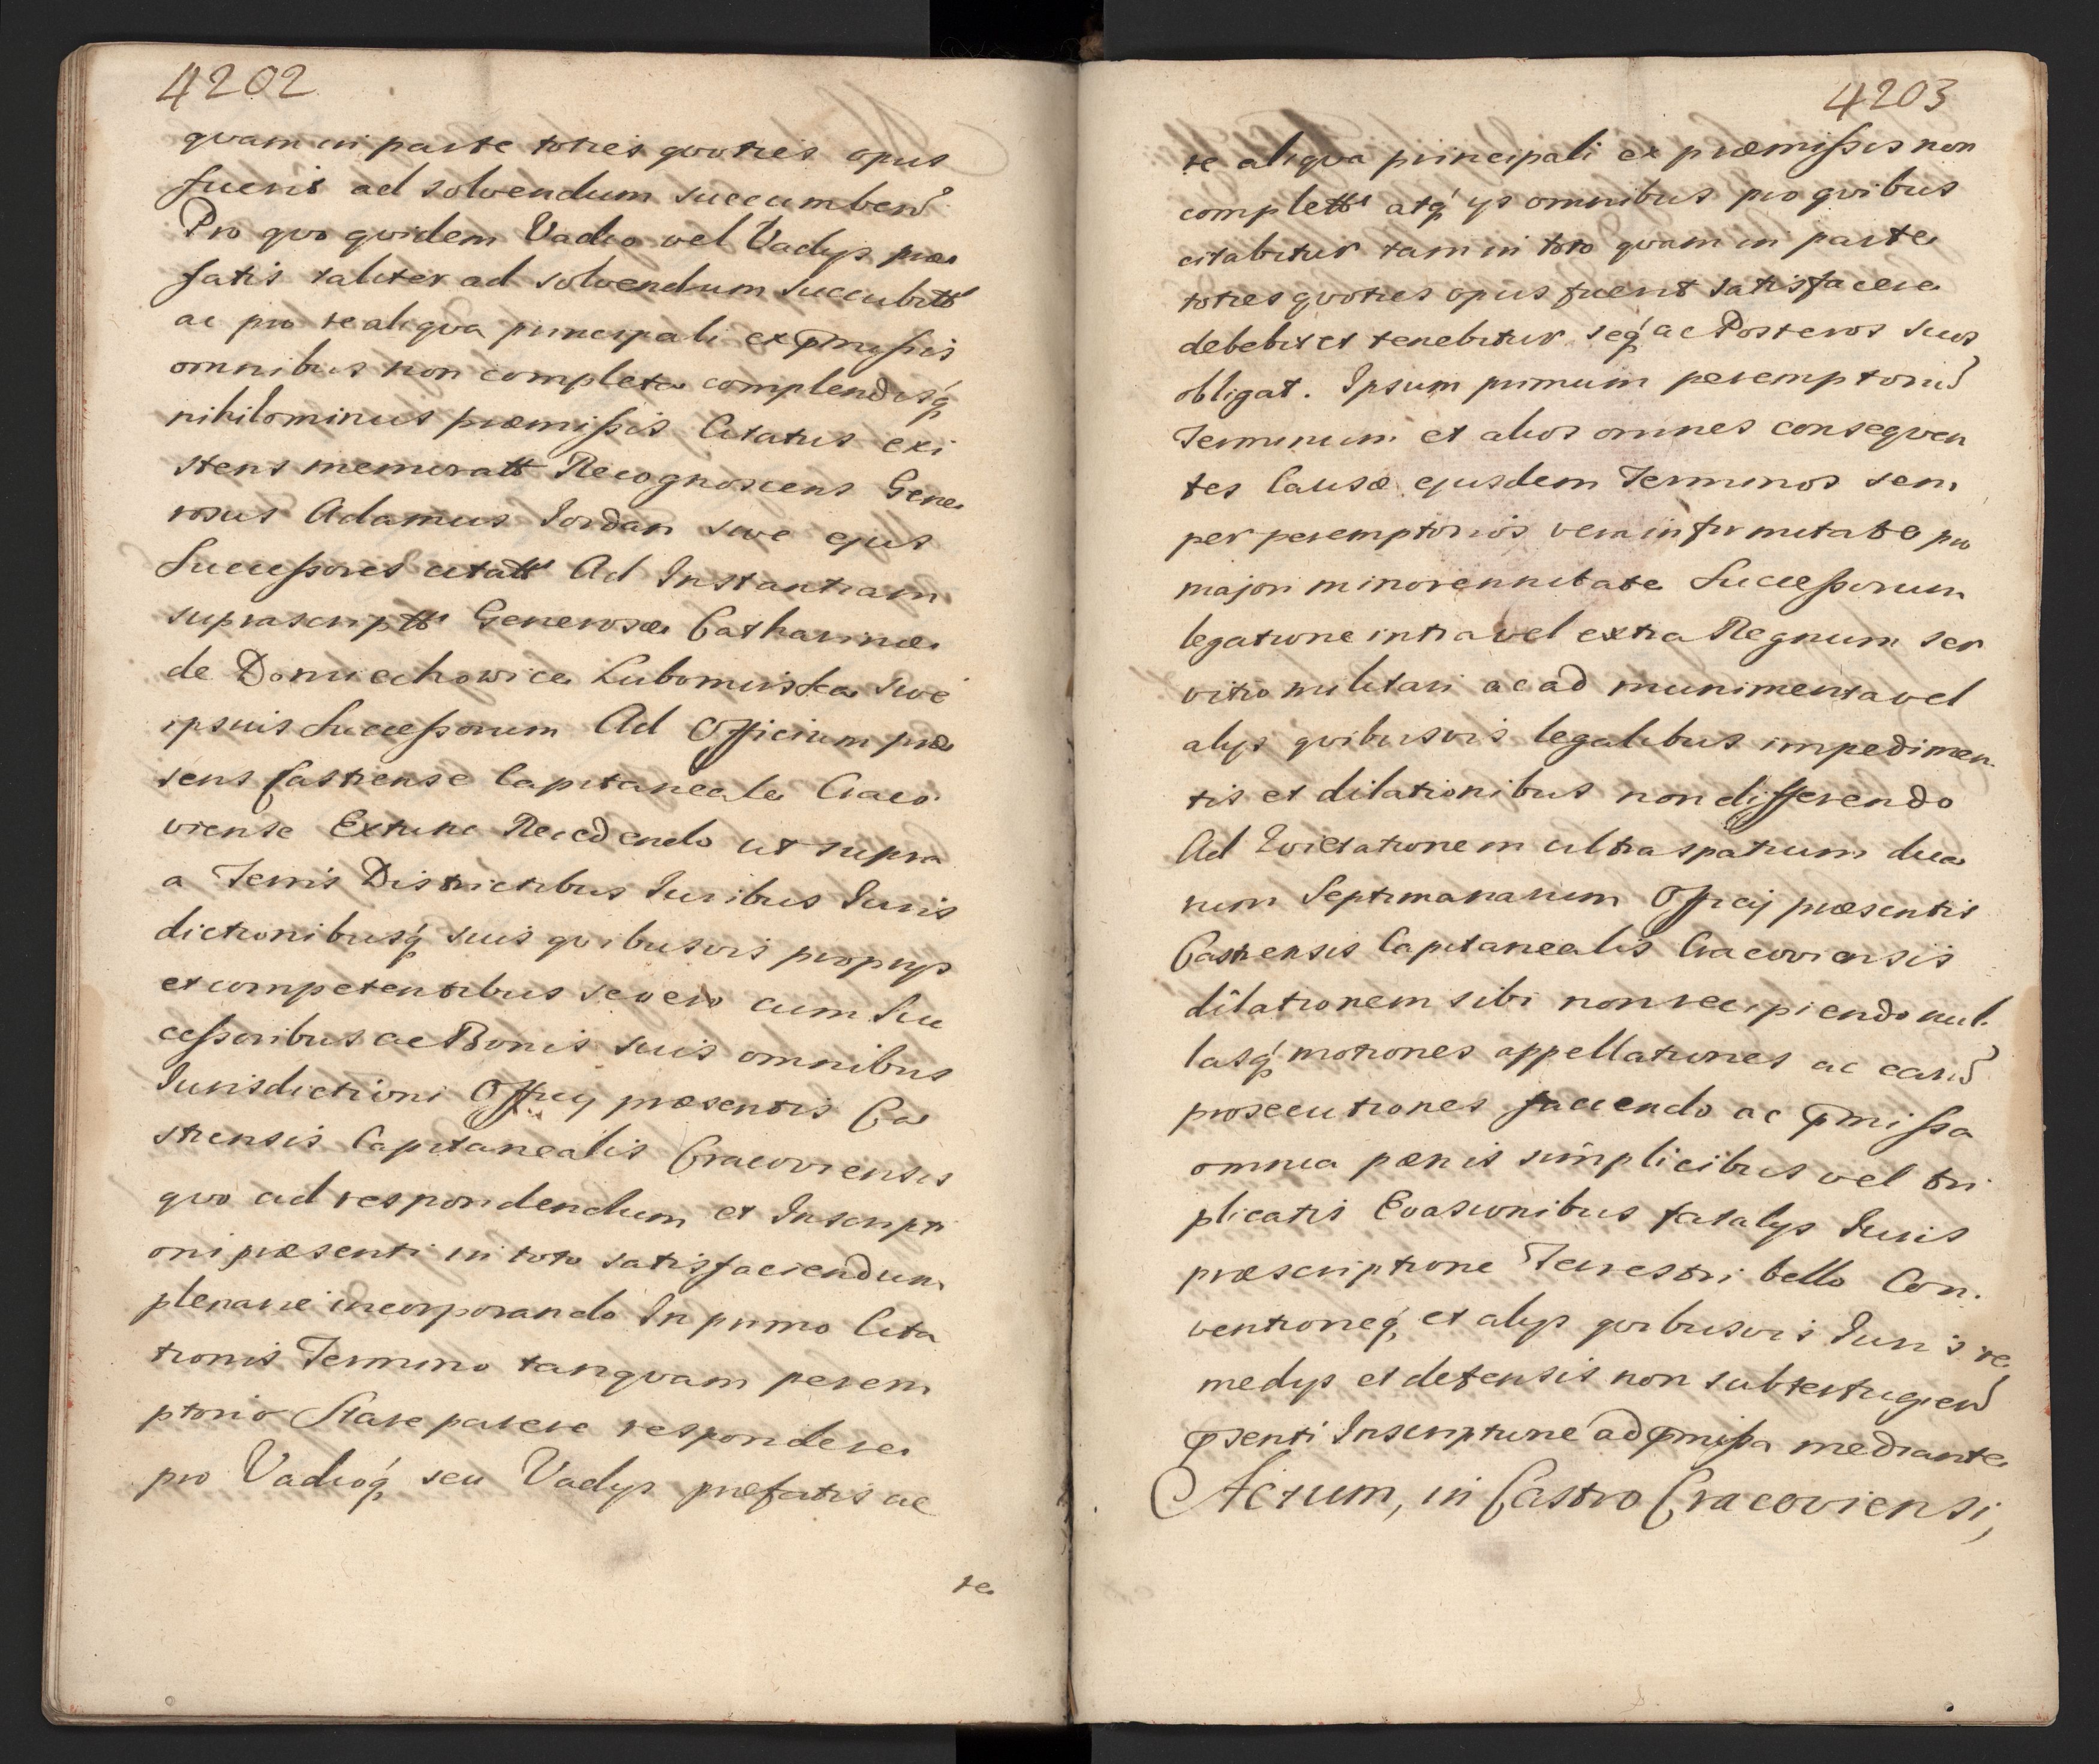 4202
quam in parte toties quoties opus
fuerit ad solvendum succumbend
Pro quo quidem Vadio vel Vadys præ
fatis taliter ad solvendum succubitts
ac pro re aliqua principali ex pmissis
omnibus non completa complendisq
nihilominus præmissis Citatus exi
stens memoratt Recognoscens Gene
rosus Adamus Jordan sive ejus
Successores citatt Ad Instantiam
suprascriptts Generosæ Catharinæ
de Domiechowice Lubomirska sive
ipsius Successorum Ad Officium præ
sens Castrense Capitaneale Craco
viense Extunc Recedendo ut supra
a Terris Districtibus Juribus Juris
dictionibusq suis quibusvis proprys
et competentibus se vero cum Suc
cessoribus ac Bonis suis omnibus
Jurisdictioni Officy præsentis Ca
strensis Capitanealis Cracoviensis
quo ad respondendum et Inscripti
oni præsenti in toto satisfaciendum
plenarie incorporando In primo Cita
tionis Termino tanquam perem
ptorio Stare parere respondere
pro Vadioq seu Vadys præfatis ac
re
4203
re aliqua principali ex præmissis non
completts atq ys omnibus pro quibus
citabitur tam in toto quam in parte
toties quoties opus fuerit satisfacere
debebit et tenebitur seq ac Posteros suos
obligat. Ipsum primum peremptoriu
Terminum et alios omnes consequen
tes Causæ ejusdem Terminos sem
per peremptorios vera infirmitate pro
majori minorennitate Successorum
legatione intra vel extra Regnum ser
vitio militari ac ad munimenta vel
alys quibusvis legalibus impedimen
tis et dilationibus non differendo
Ad Evictationem ultra spatium dua
rum Septimanarum Officy præsentis
Castrensis Capitanealis Cracoviensis
dilationem sibi non recipiendo nul
lasq motiones appellationes ac earu
prosecutiones faciendo ac pmissa
omnia pænis simplicibus vel tri
plicatis Evasionibus fatalys Juris
præscriptione Terrestri bello Con.
ventioneq et alys quibusvis Juris re
medys et defensis non subterfugiend
psenti Inscriptione ad pmissa mediante
Actum, in Castro Cracoviensi,